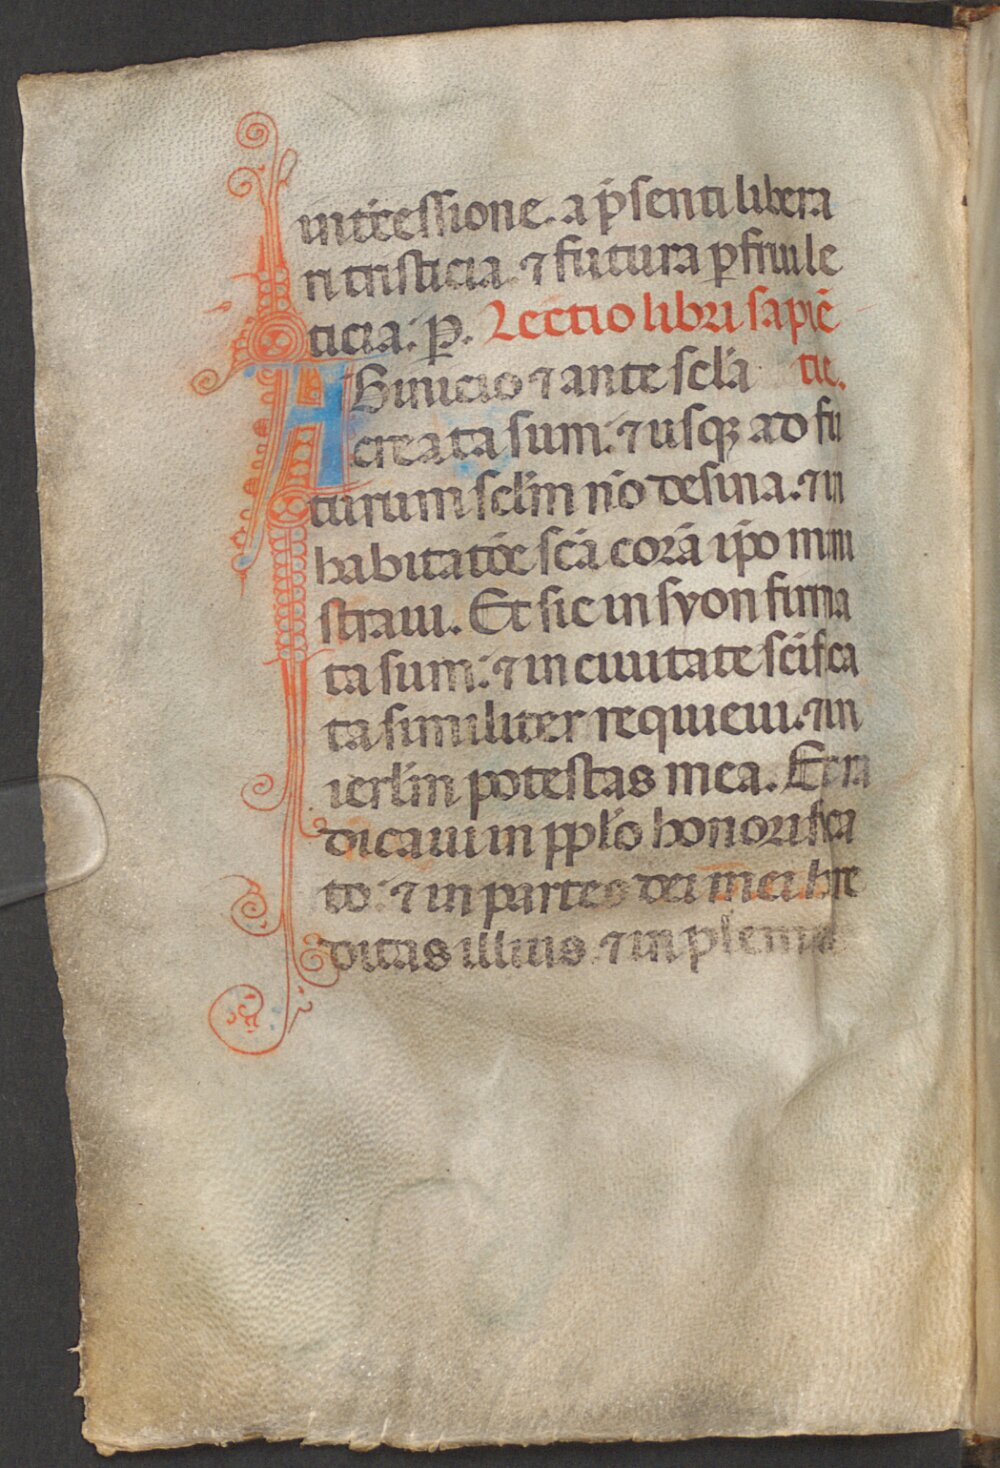 intercessione. a p̃senti libera
ri tristicia. ⁊ futura ꝑfrui le
ticia. ꝑ. Lectio libri sapiẽ
tie.
AB inicio ⁊ ante sclã
creata sum: ⁊ usqꝫ ad fu
turum sclm̃ nõ desinã. ⁊ in
habitatõe scã corã ipõ mini
straui. Et sic in syon firma
ta sum: ⁊ in ciuitate scifca
ta similiter requieui. ⁊ in
ierlm̃ potestas mea. Et ra
dicaui in pplõ honorifica
to: ⁊ in partes dei mei here
ditas illius. ⁊ in pleni